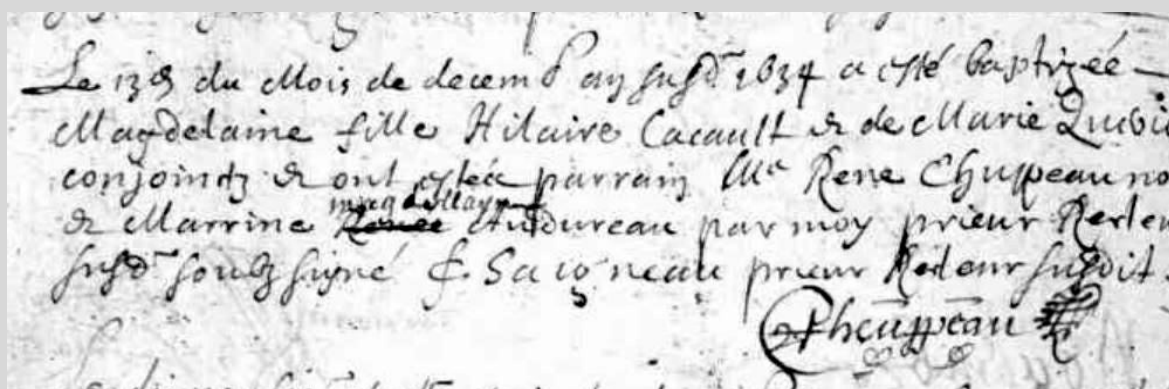 Le 13e du Mois de decemb an susd 1634 a esté baptizée
Magdelaine fille Hilaire Cacault & de Marie
conjointz & ont estéé parrain Me Rene Chuppeau no
magdellayne
& Marrine Renee Audureau par moy prieur Recteu
susd soubzsigné Saigneau prieur Recteur susdit
Cheuppeau